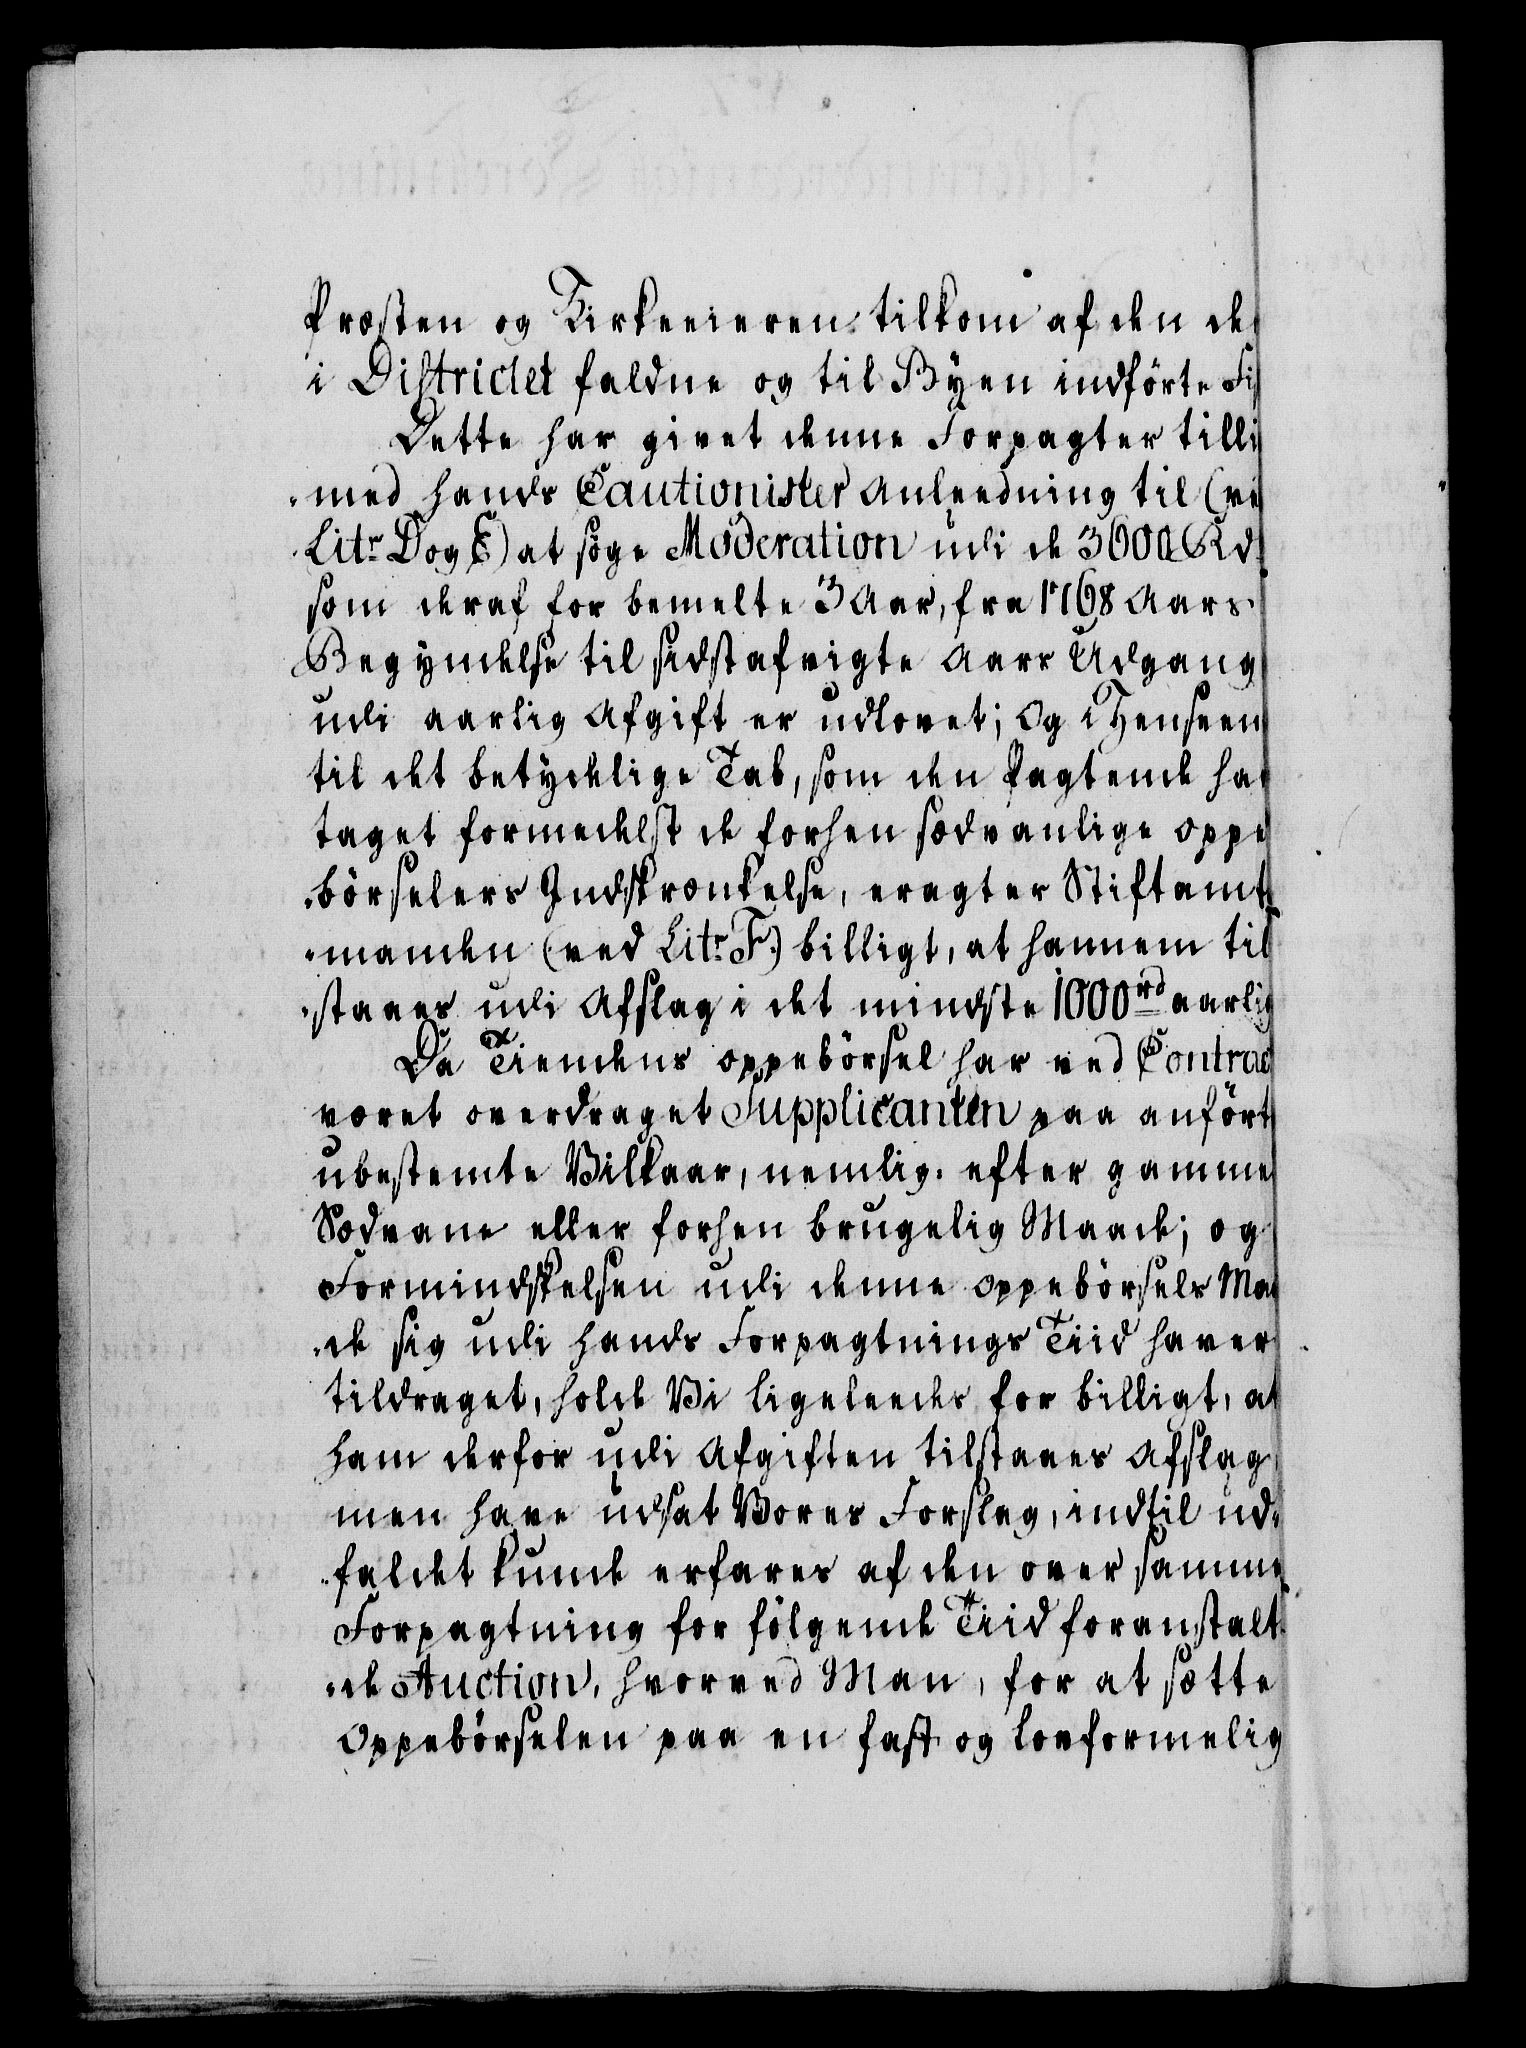 Præsten og Kirkeeieren tilkom af den de
i Districtet faldne og til Byen indførte Fi
Dette har givet denne Forpagter tilli
-med hands Cautionister Anleedning til (ve
Litr. D og E) at søge Moderation udi de 3600 Rd.
som deraf for bemelte 3 Aar, fra 1768 Aars
Begyndelse til sidstafvigte Aars Udgang
udi aarlig Afgift er udlovet; Og i Henseen
til det betydelige Tab, som den Pagtende har
taget formedelst de forhen sædvanlige Oppe
-børselers Indskrænkelse, eragter Stiftamt-
-manden (ved Litr. F.) billigt, at hannem til
-staaes udi Afslag i det mindste 1000 rd aarlig
Da Tiendens Oppebørsel har ved Contrac
været overdraget Supplicanten paa anført
ubestemte Vilkaar, nemlig. efter gammel
Sædvane eller forhen brugelig Maade; og
Formindskelsen udi denne Oppebørsels Maa
-de sig udi hands Forpagtnings Tiid haver
tildraget, holde Vi ligeleedes for billigt, at
ham derfor udi Afgiften tilstaaes Afslag,
men have udsat Vores Forslag, indtil ud-
-faldet kunde erfares af den over samme
Forpagtning for følgende Tiid foranstalt-
-de Auction, hvorved Man, for at sætte
Oppebørselen paa en fast og lovformelig